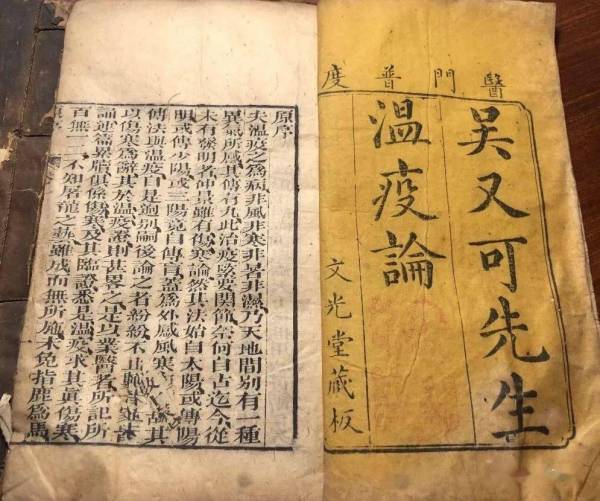 醫門普度
吳又可先生
溫疫論
文光堂藏板
原序
夫溫疫之為病非風非寒非暑非濕乃天地間別有一種
異氣所感其傳有九此治疫緊要關節奈何自古迄今從
未有發明者仲景雖有傷寒論然其法始自太陽或傳陽
明或傳少陽或三陽竟自傳胃蓋為外感風寒故其
傳法與溫疫自是迥別嗣後論之者紛紛不止皆
以傷寒為辭其於溫疫證則甚畧之是以業醫者所記所
誦連篇累牘俱係傷寒及其臨證悉是溫疫求其真傷寒
百無一二不知屠龍之藝雖成而無所施未免指鹿為馬
原序